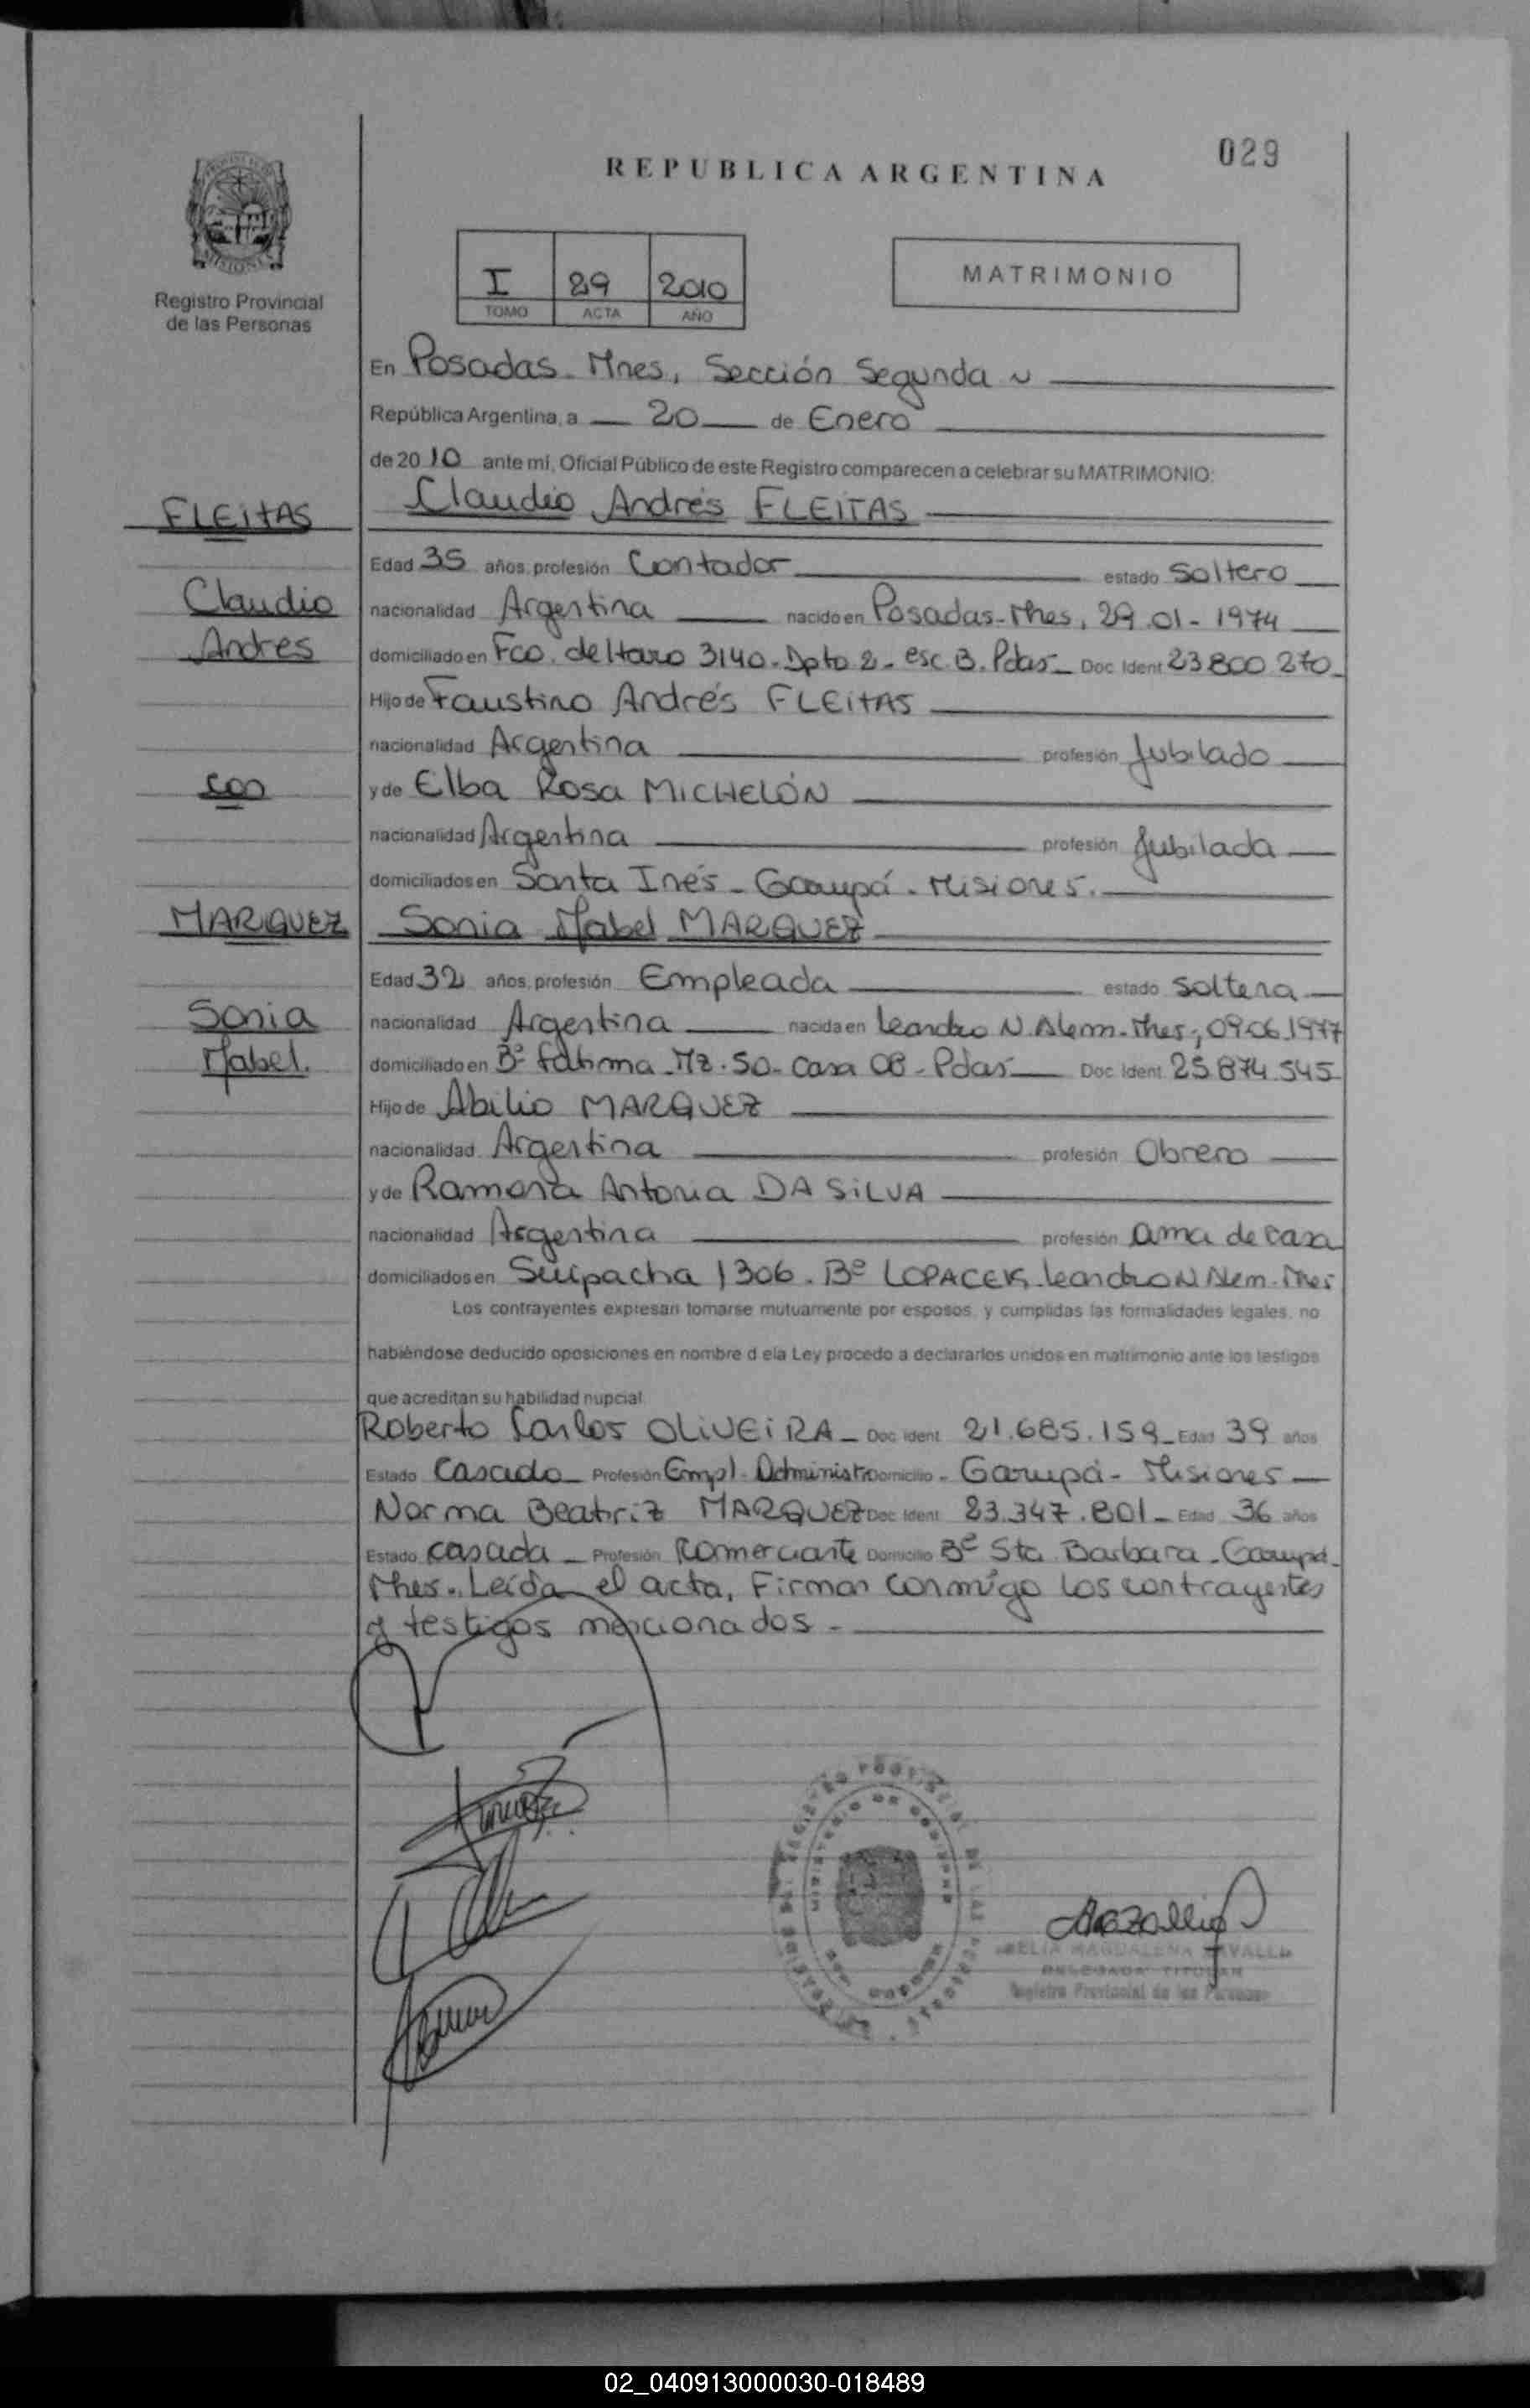 029
REPUBLICA ARGENTINA
MISIONES
Registro Provincial
de las Personas
I 29 2010
TOMO ACTA AÑO
MATRIMONIO
En Posadas - Mnes, Sección Segunda
República Argentina, a 20 de Enero
de 2010 ante mi, Oficial Público de este Registro comparecen a celebrar su MATRIMONIO:
FLEITAS
Claudio Andrés FLEITAS
Edad 35 años, profesión Contador estado Soltero
Claudio
nacionalidad Argentina nacido en Posadas - Mnes, 29.01-1974
Andres
domiciliado en Fco. de Haro 3140 - Dpto 2 - esc. B. Pdas - Doc. Ident. 23.800.270
Hijo de Faustino Andrés FLEITAS
nacionalidad Argentina profesión Jubilado
con
y de Elba Rosa MICHELÓN
nacionalidad Argentina profesión Jubilada
domiciliados en Santa Inés - Garupá - Misiones.
MARQUEZ
Sonia Mabel MARQUEZ
Edad 32 años, profesión Empleada estado Soltera
Sonia
nacionalidad Argentina nacida en Leandro N. Alem - Mnes, 09.06.1977
Mabel.
domiciliado en Bº Fátima - Mz. 50 - Casa 08 - Pdas Doc. Ident. 25.874.545
Hijo de Abilio MARQUEZ
nacionalidad Argentina profesión Obrero
y de Ramona Antonia DA SILVA
nacionalidad Argentina profesión ama de casa
domiciliados en Suipacha 1306. Bº LOPACEK Leandro N Alem. Mnes
Los contrayentes expresan tomarse mutuamente por esposos, y cumplidas las formalidades legales, no
habiéndose deducido oposiciones en nombre d ela Ley procedo a declararlos unidos en matrimonio ante los testigos
que acreditan su habilidad nupcial.
Roberto Carlos OLIVEIRA - Doc. Ident. 21.685.159 - Edad 39 años
Estado Casado - Profesión Empl. Administ. Domicilio - Garupá - Misiones
Norma Beatriz MARQUEZ Doc. Ident. 23.347.801 - Edad 36 años
Estado casada - Profesión Comerciante Domicilio Bº Sta. Barbara - Garupá -
Mnes. Leída el acta, Firman conmigo los contrayentes
y testigos mencionados -
MAGDALENA
DELEGADA TITULAR
Registro Provincial de las Personas
02_040913000030-018489